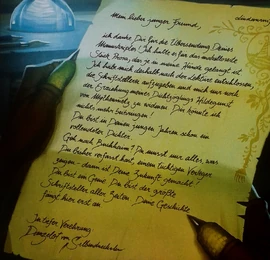 Mein lieber junger Freund,
ich danke Dir für die Übersendung Deines
Manuskriptes. Ich halte es für das
Stück Prosa, das je in meine Hände gelangt ist.
Ich habe mich deshalb nach der Lektüre entschlossen,
die Schriftstellerei aufzugeben und mich nur noch
der Erziehung meines Hildegunst
von Mythenmetz zu widmen. Dir könnte ich
nichts mehr beibringen!
Du bist in Deinen jungen Jahren schon ein
vollendeter Dichter.
Geh nach Buchhaim! Du musst nur alles, was
Du bisher verfasst hast, einem tüchtigen Verleger
zeigen - dann ist Deine Zukunft gemacht!
Du bist ein Genie. Du bist der größte
Schriftsteller aller Zeiten. Deine Geschichte
fängt hier erst an.
In tiefer Verehrung
Danzelot von Silbendrechsler